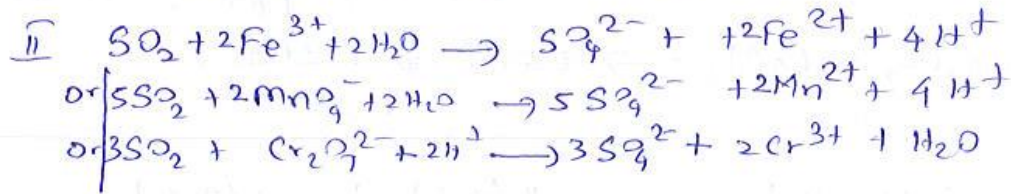 II SO₂ + 2Fe³⁺ + 2H₂O → SO₄²⁻ + +2Fe²⁺ + 4H⁺
or 5SO₂ + 2MnO₄⁻ + 2H₂O → 5SO₄²⁻ +2Mn²⁺ + 4H⁺
or 3SO₂ + Cr₂O₇²⁻ + 2H⁺ → 3SO₄²⁻ + 2Cr³⁺ + H₂O